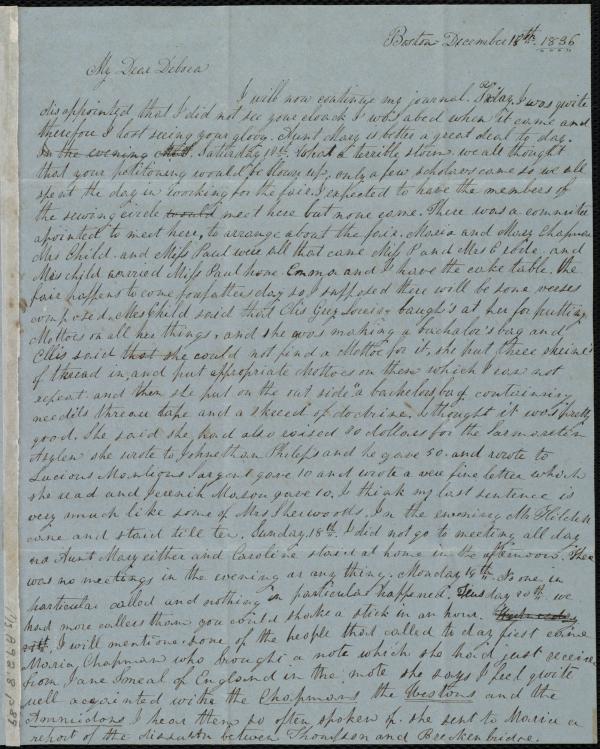 Boston December 18th. 1836
My Dear Debora
I will now continue my journal. Friday, I was quite
disappointed that I did not see your cloack I was abed when it came and
therefore I lost seeing your glory. Aunt Mary is better a great deal to day.
In the evening Saturday 17th. What a terrible storm we all thought
that your petitioning would be blown up, only a few scholars came so we all
spent the day in working for the fair. I expected to have the members of
the sewing circle to meet here but none came. There was a commitee
apointed to meet here, to arrange about the fair. Maria and Mary Chapman
Mrs Child. and Miss Paul were all that came Miss P and Mrs C rode, and
Mrs child carried Miss Paul home. Emma and I have the cake table. the
fair happens to come forefathers day so I supposed there will be some verses
composed. Mrs Child said that Elis Grey Loring laugh's at her for putting
Mottoes on all her things, and she was making a bachalor's bag and
Ellis said that she could not find a Motto for it, she put three skeines
of thread in, and put appropriate Mottoes on them which I can not
repeat. and then she put on the out side "a bachelors bag containing
needils thread tape and a skeed of doctrine. I thought it was pretty
good. She said she had also raised 80 dollars for the Sarmareten
Asylem she wrote to Johnethan Philips and he gave 50. and wrote to
Lucious Manlious Sargent gave 10 and wrote a very fine letter which
she read and Jeremih Mason gave 10, I think my last sentence is
very much like some of Mrs Sherwoods. In the evening Mr Hildreth
came and staid till ten. Sunday, 18th. I did not go to meeting all day
no Aunt Mary either and Caroline staid at home in the afternoon. There
was no meetings in the evening or any thing. Monday 19th. No one in
particular called and nothing in particular happened. Tuesday 20th. we
had more callers than you could shake a stick in an hour. Wednesday
21st. I will mention some of the people that called to day first came
Maria Chapman who brought a note which she had just receive
from Jane Smeal of England in the note she says I feel quite
well acquinted withe the Chapmans the Westons and the
Ammidons I hear them so often spoken of. she sent to Maria a
report of the discusion between Thompson and Breckenbridge.